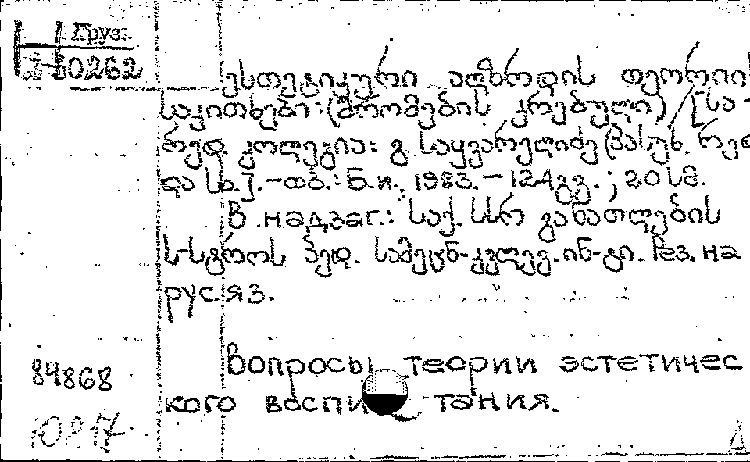 Груз.
2-10262
ესთეტიკური აღზრდის თეორიის
საკითხები: (შრომების კრებული) [სა-
რედ. კოლეგია: გ. საყვარელიძე (პასუხ. რედ.)
და სხ.]. - თბ.: Б.и., 1983. - 124გვ.; 20 სმ.
В надзаг.: საქ. სსრ განათლების
ს-სტროს პედ. სამეცნ-კვლევ. ин-ტი. Рез. на
рус. яз.
84868
Вопросы теории эстетичес
кого воспитания.